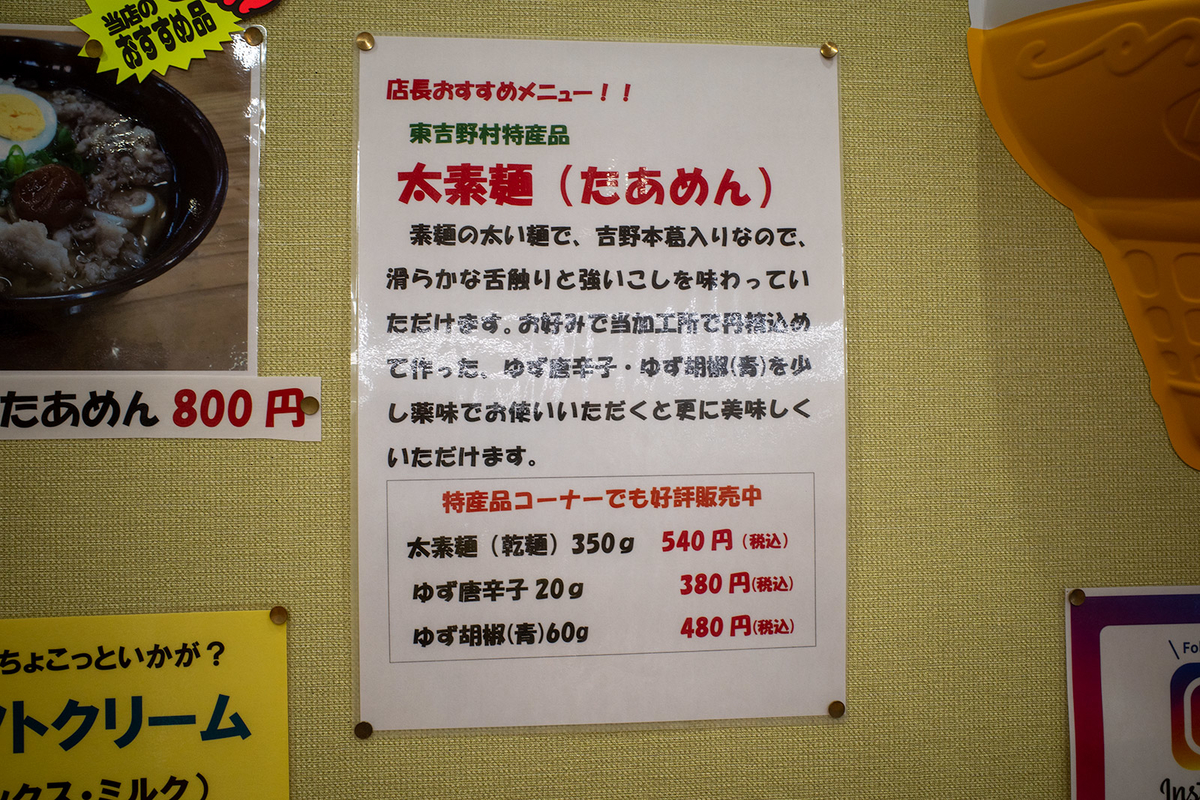 当店の
おすすめ品
たあめん 800円
ちょこっといかが？
トクリーム
ックス・ミルク）
店長おすすめメニュー！！
東吉野村特産品
太素麺（たあめん）
素麺の太い麺で、吉野本葛入りなので、
滑らかな舌触りと強いこしを味わってい
ただけます。お好みで当加工所で丹精込め
て作った、ゆず唐辛子・ゆず胡椒(青)を少
し薬味でお使いいただくと更に美味しく
いただけます。
特産品コーナーでも好評販売中
太素麺（乾麺）350ｇ 540円（税込）
ゆず唐辛子 20ｇ 380円(税込)
ゆず胡椒(青)60g 480円(税込)
\ Fo
Ins